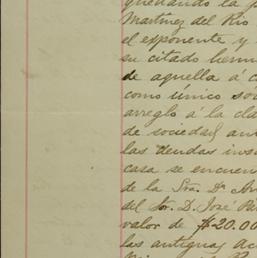 quedando la
Martinez del Rio
el exponente y
su citado herm
de aquella á c
como único só
arreglo á la cla
de sociedad an
las deudas ins
casa se encuen
de la Sra. Dª
del Sor. D. José Pa
valor de $20.00
las antiguas Ac